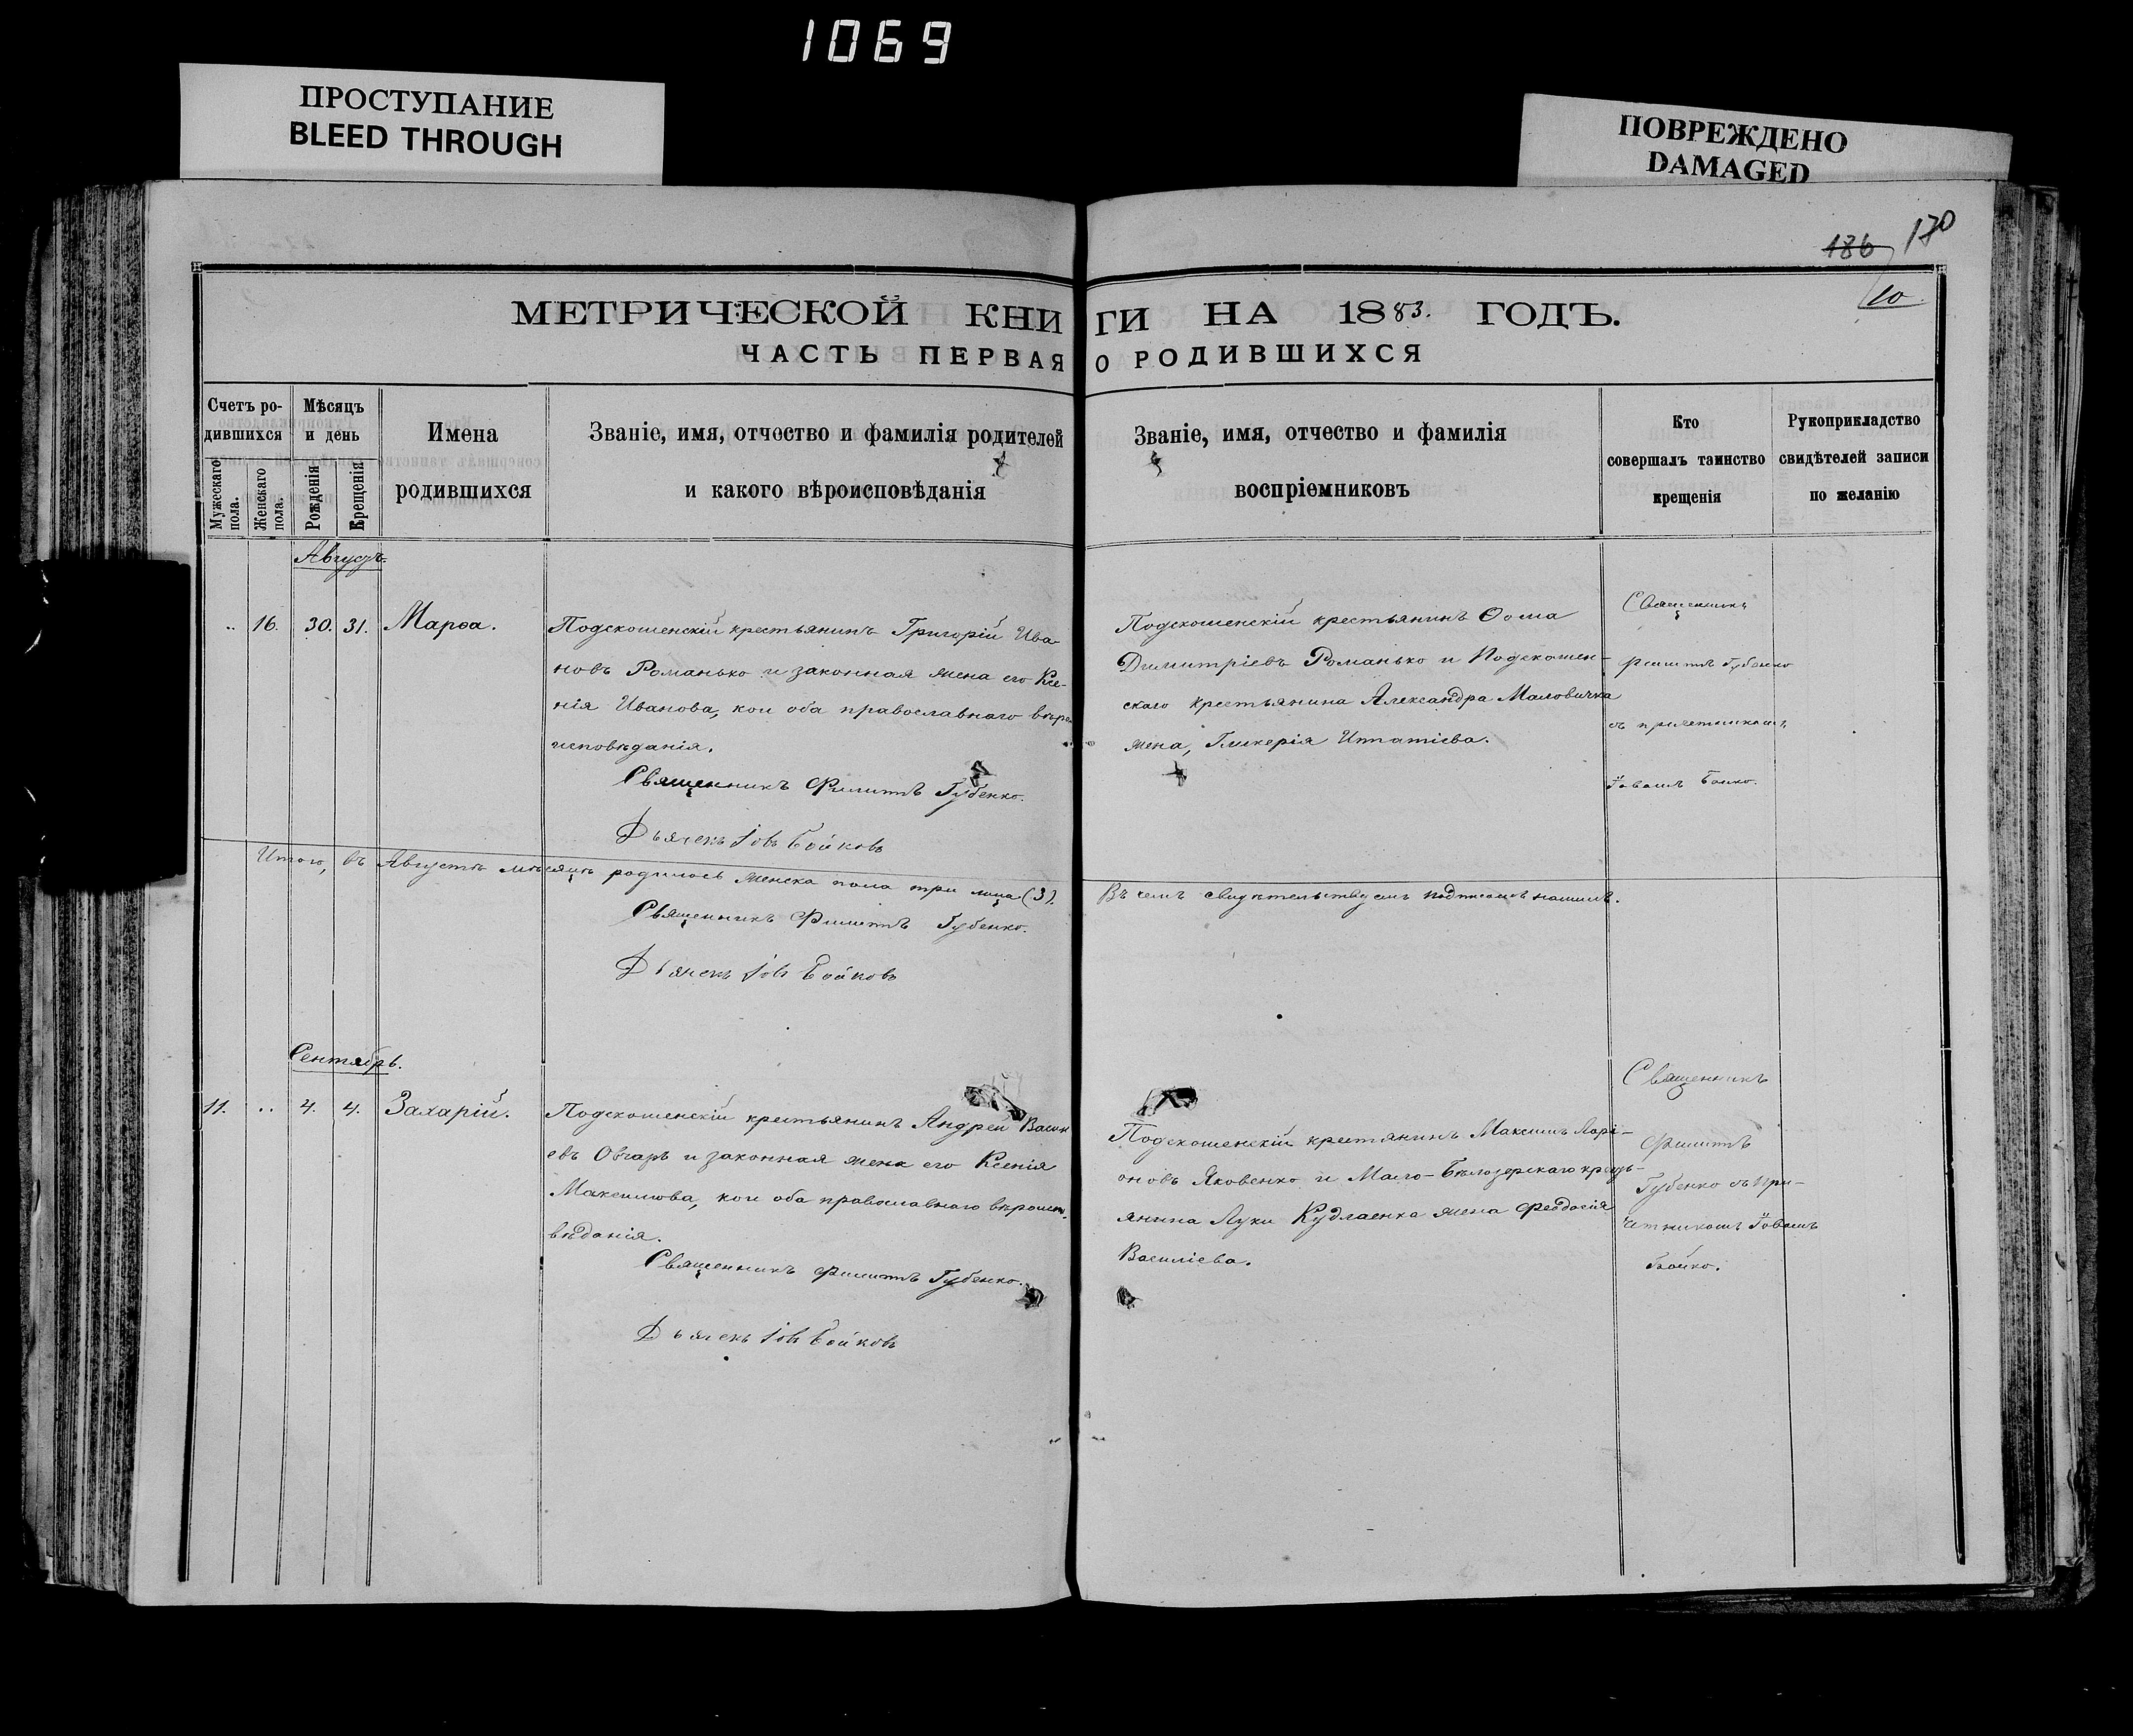 1069
ПРОСТУПАНИЕ
BLEED THROUGH
ПОВРЕЖДЕНО
DAMAGED
186 170
10
МЕТРИЧЕСКОЙ КНИГИ НА 1883. ГОДЪ.
ЧАСТЬ ПЕРВАЯ О РОДИВШИХСЯ
Счетъ ро-
дившихся
Мужескаго пола.
Женскаго пола.
Мѣсяцъ
и день
Рожденія
Крещенія
Имена
родившихся
Званіе, имя, отчество и фамилія родителей
и какого вѣроисповѣданія
Званіе, имя, отчество и фамилія
воспріемниковъ
Кто
совершалъ таинство
крещенія
Рукоприкладство
свидѣтелей записи
по желанію
Августъ.
.. 16. 30. 31. Марѳа.
Подскошенскій крестьянинъ Григорій Ива-
новъ Романько и законная жена его Ксе-
нія Иванова, кои оба православнаго вѣро
исповѣданія.
Священникъ Филиппъ Губенко.
Дьячекъ Іовъ Бойковъ
Подскошенскій крестьянинъ Ѳома
Димитріевъ Романько и Подскошен-
скаго крестьянина Александра Маловичка
жена, Гликерія Ипатіева.
Священникъ
Филиппъ Губенко
съ причетникомъ
Іовомъ Бойко.
Итого, въ Августѣ мѣсяцѣ родилось женска пола три лица (3).
Въ чемъ свидѣтельствуемъ подписомъ нашимъ.
Священникъ Филиппъ Губенко.
Дьячекъ Іовъ Бойковъ
Сентябрь.
11. .. 4. 4. Захарій.
Подскошенскій крестьянинъ Андрей Васил
евъ Овчаръ и законная жена его Ксенія
Максимова, кои оба православнаго вѣроиспо
вѣданія.
Священникъ Филиппъ Губенко.
Дьячекъ Іовъ Бойковъ
Подскошенскій крестянинъ Максимъ Ларі-
оновъ Яковенко и Мало-Бѣлозерскаго кресть-
янина Луки Кудлаенка жена Феодосія
Василіева.
Священникъ
Филиппъ
Губенко съ при-
четникомъ Іовомъ
Бойко.